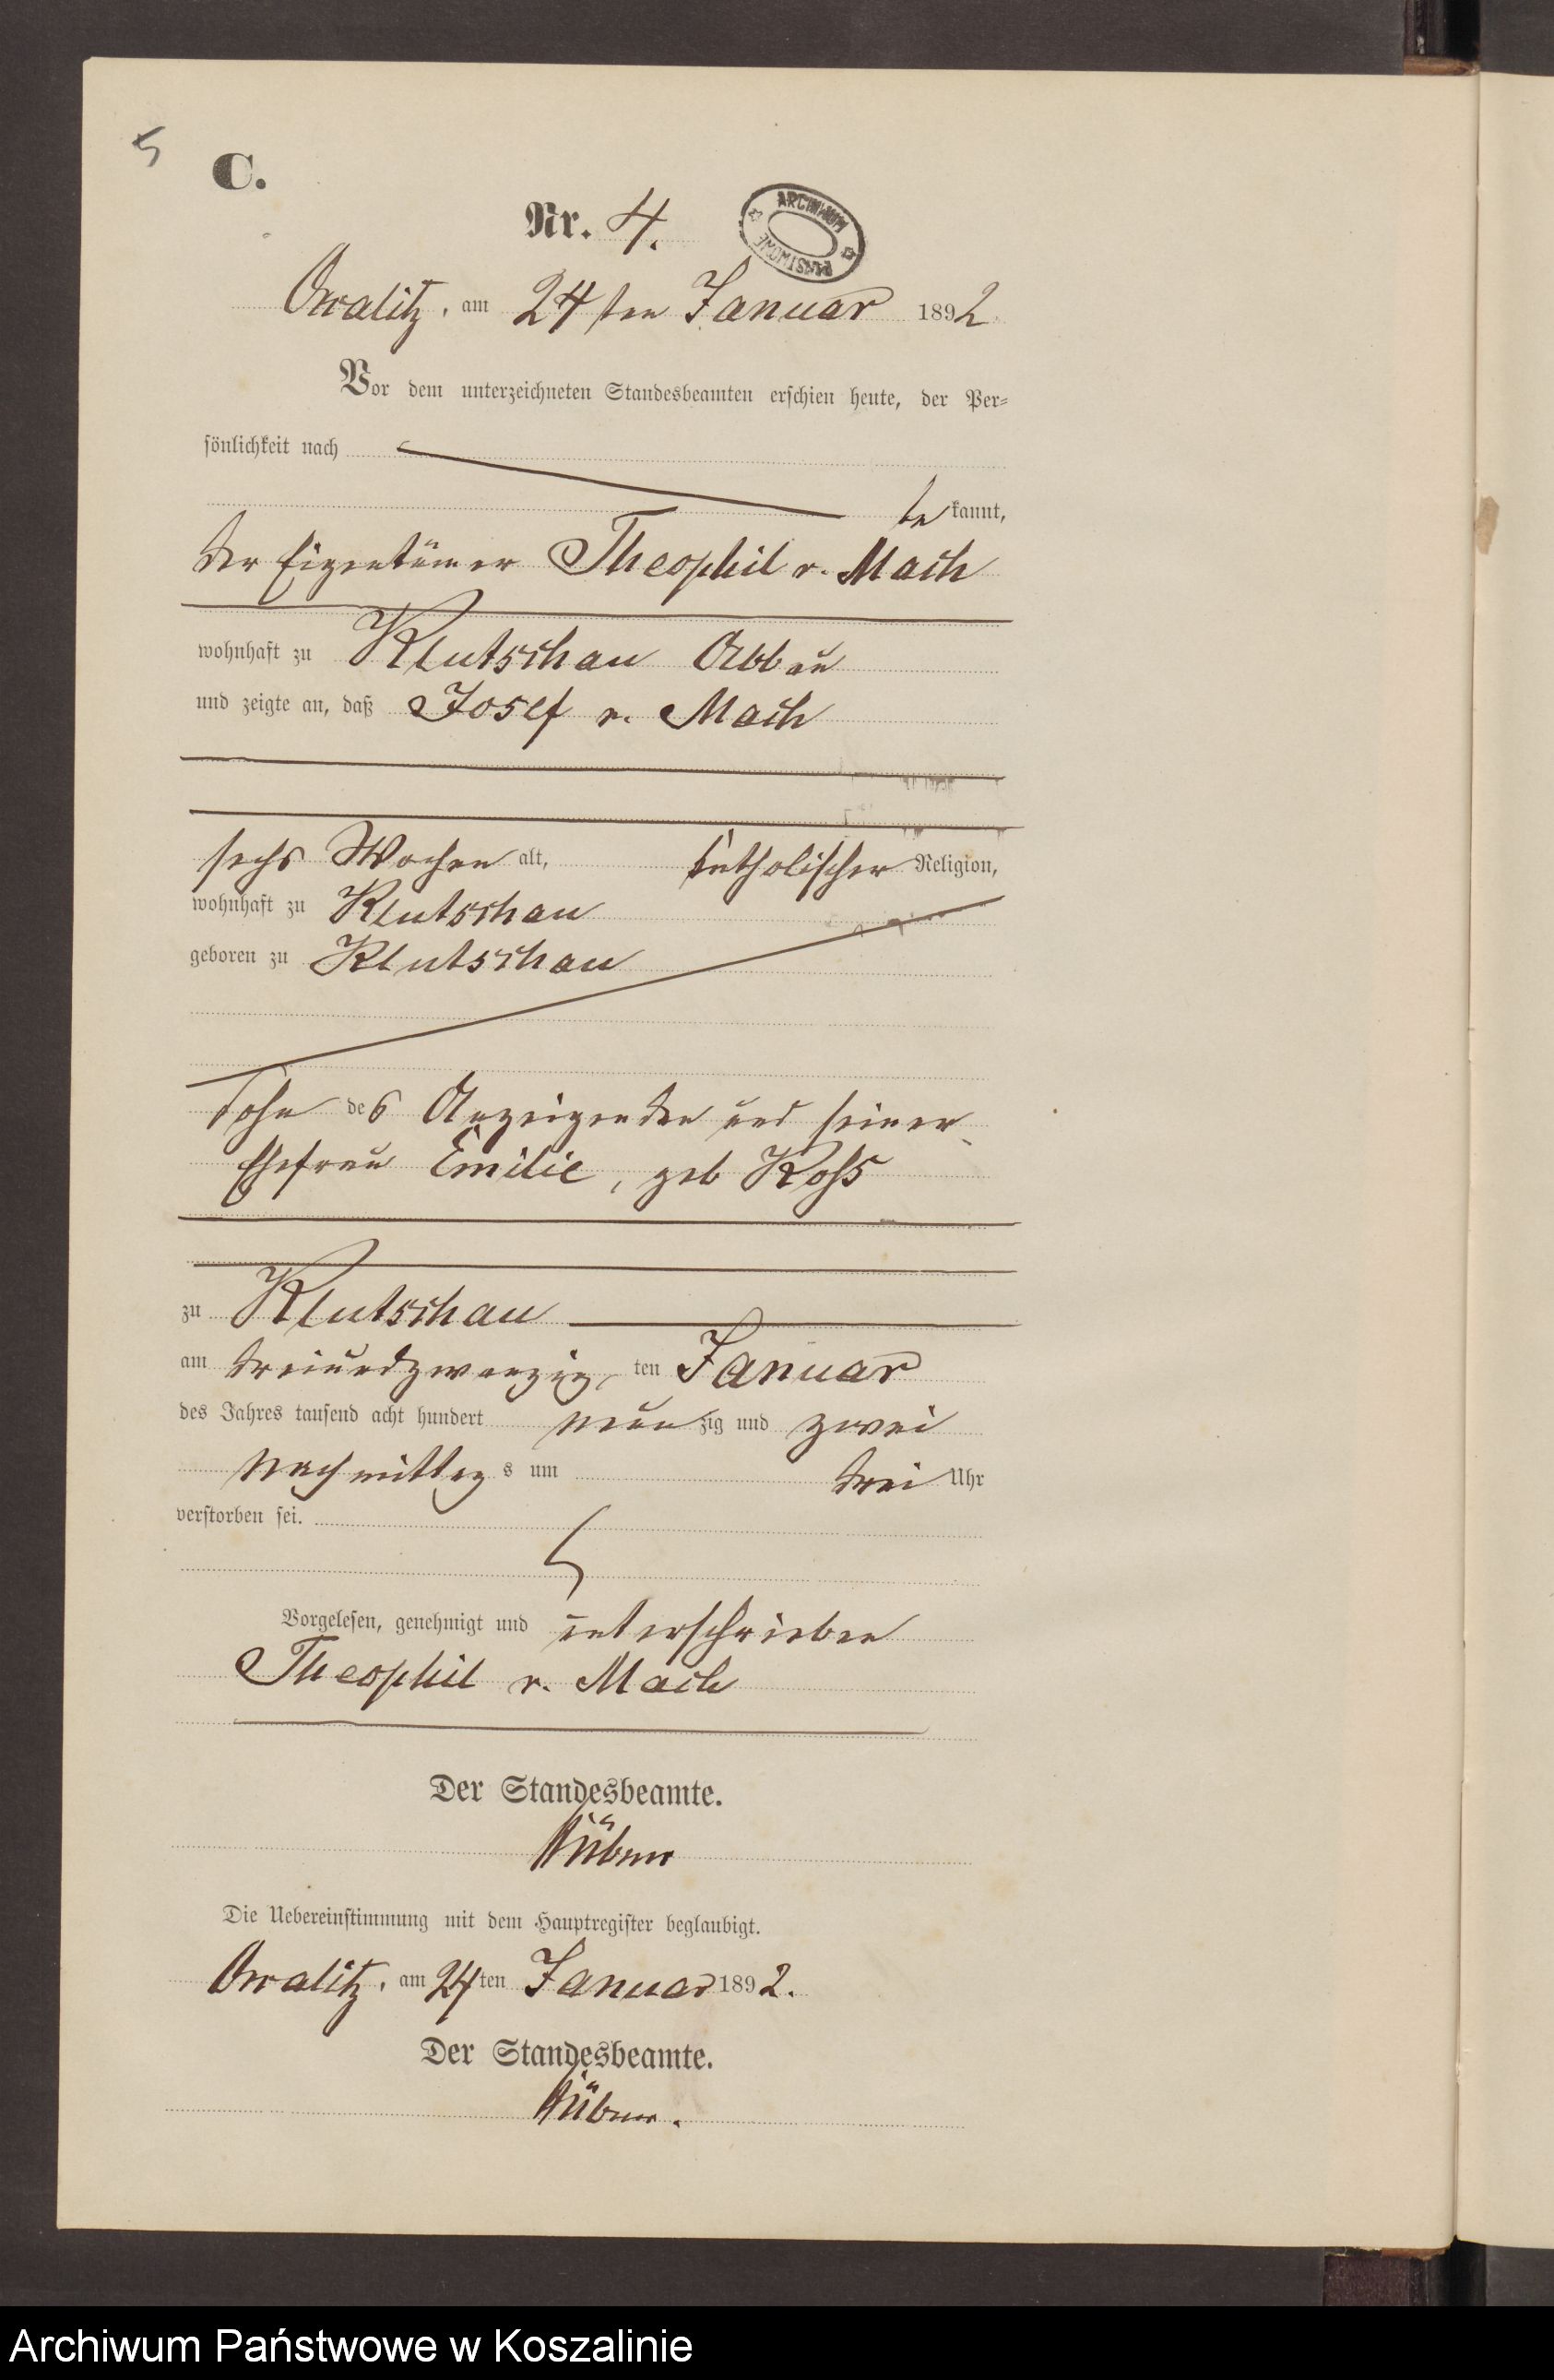 5
C.
Nr. 4.
ARCHIWUM PAŃSTWOWE
Owalitz, am 24ten Januar 1892
Vor dem unterzeichneten Standesbeamten erschien heute, der Per-
sönlichkeit nach
bekannt,
der Eigentümer Theophil v. Mach
wohnhaft zu Klutschau Abbau
und zeigte an, daß Josef v. Mach
sechs Wochen alt, katholischer Religion,
wohnhaft zu Klutschau
geboren zu Klutschau
Sohn des Anzeigenden und seiner
Ehefrau Emilie, geb Koss
zu Klutschau
am dreiundzwanzig ten Januar
des Jahres tausend acht hundert neunzig und zwei
Nachmittags um drei Uhr
verstorben sei.
Vorgelesen, genehmigt und unterschrieben
Theophil v. Mach
Der Standesbeamte.
Die Uebereinstimmung mit dem Hauptregister beglaubigt.
Owalitz, am 24ten Januar 1892.
Der Standesbeamte.
Archiwum Państwowe w Koszalinie